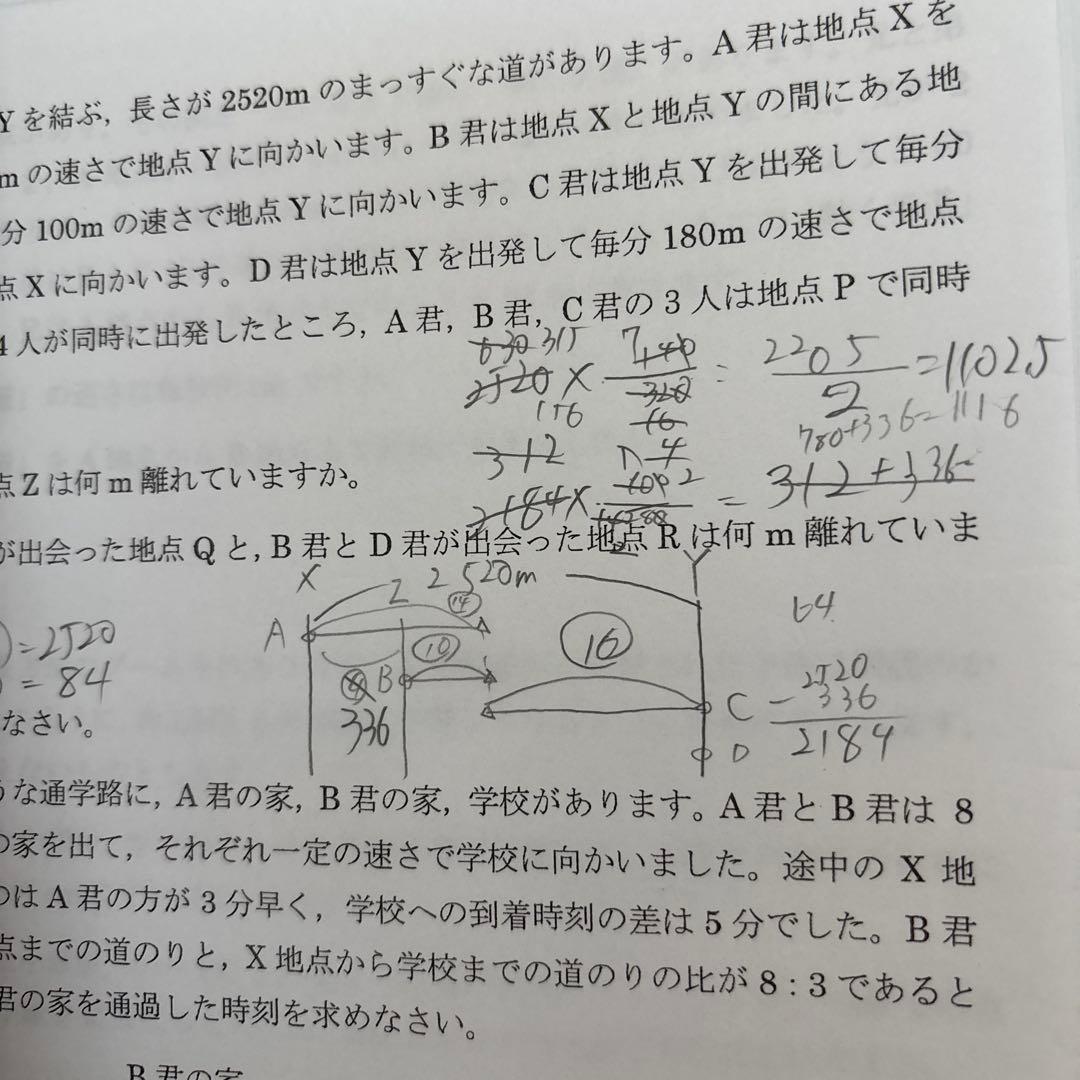 Yを結ぶ，長さが2520mのまっすぐな道があります。A君は地点Xを
mの速さで地点Yに向かいます。B君は地点Xと地点Yの間にある地
分100mの速さで地点Yに向かいます。C君は地点Yを出発して毎分
点Xに向かいます。D君は地点Yを出発して毎分180mの速さで地点
4人が同時に出発したところ，A君，B君，C君の3人は地点Pで同時
630 315 7
2520 × 140/320 : 2205/2 = 11025
16
156
780+336=1116
312 4
2184× 2 = 312+336
点Zは何m離れていますか。
が出会った地点Qと，B君とD君が出会った地点Rは何m離れていま
X Z 2520m Y
A ⑭
⑩ ⑯ 64
B
336
C
D
2520
－336
2184
)=2520
)=84
なさい。
うな通学路に，A君の家，B君の家，学校があります。A君とB君は8
の家を出て，それぞれ一定の速さで学校に向かいました。途中のX地
のはA君の方が3分早く，学校への到着時刻の差は5分でした。B君
点までの道のりと，X地点から学校までの道のりの比が8：3であると
君の家を通過した時刻を求めなさい。
B君の家